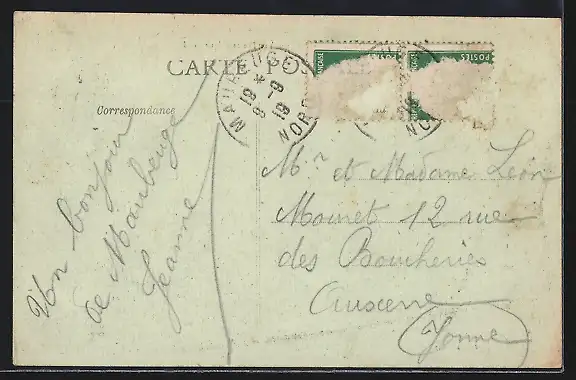 CARTE POSTALE
Correspondance
MAUBEUGE
19 *
9 -9
19
NORD
POSTES
POSTES
NORD
Un bonjour
de Maubeuge
Jeanne
Mr et Madame Leon
Mouret 12 rue
des Boucheries
Auxerre
Yonne